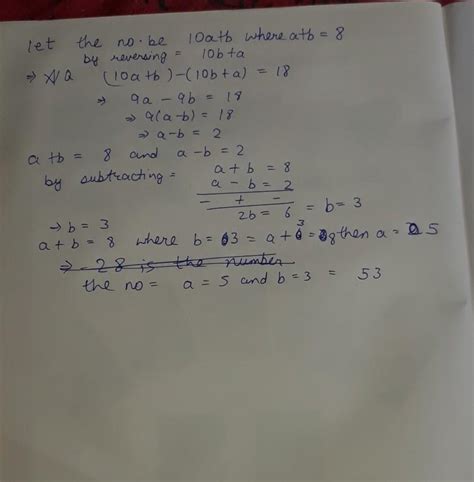 let the no. be 10a+b where a+b = 8
by reversing = 10b+a
⇒ A/Q (10a+b)-(10b+a) = 18
⇒ 9a - 9b = 18
⇒ 9(a-b) = 18
⇒ a-b = 2
a+b = 8 and a-b = 2
by subtracting = a + b = 8
a - b = 2
- + -
2b = 6 = b = 3
→ b = 3
a+b = 8 where b = 3 = a + 3 = 8 then a = 5
⇒ 28 is the number
the no = a = 5 and b = 3 = 53